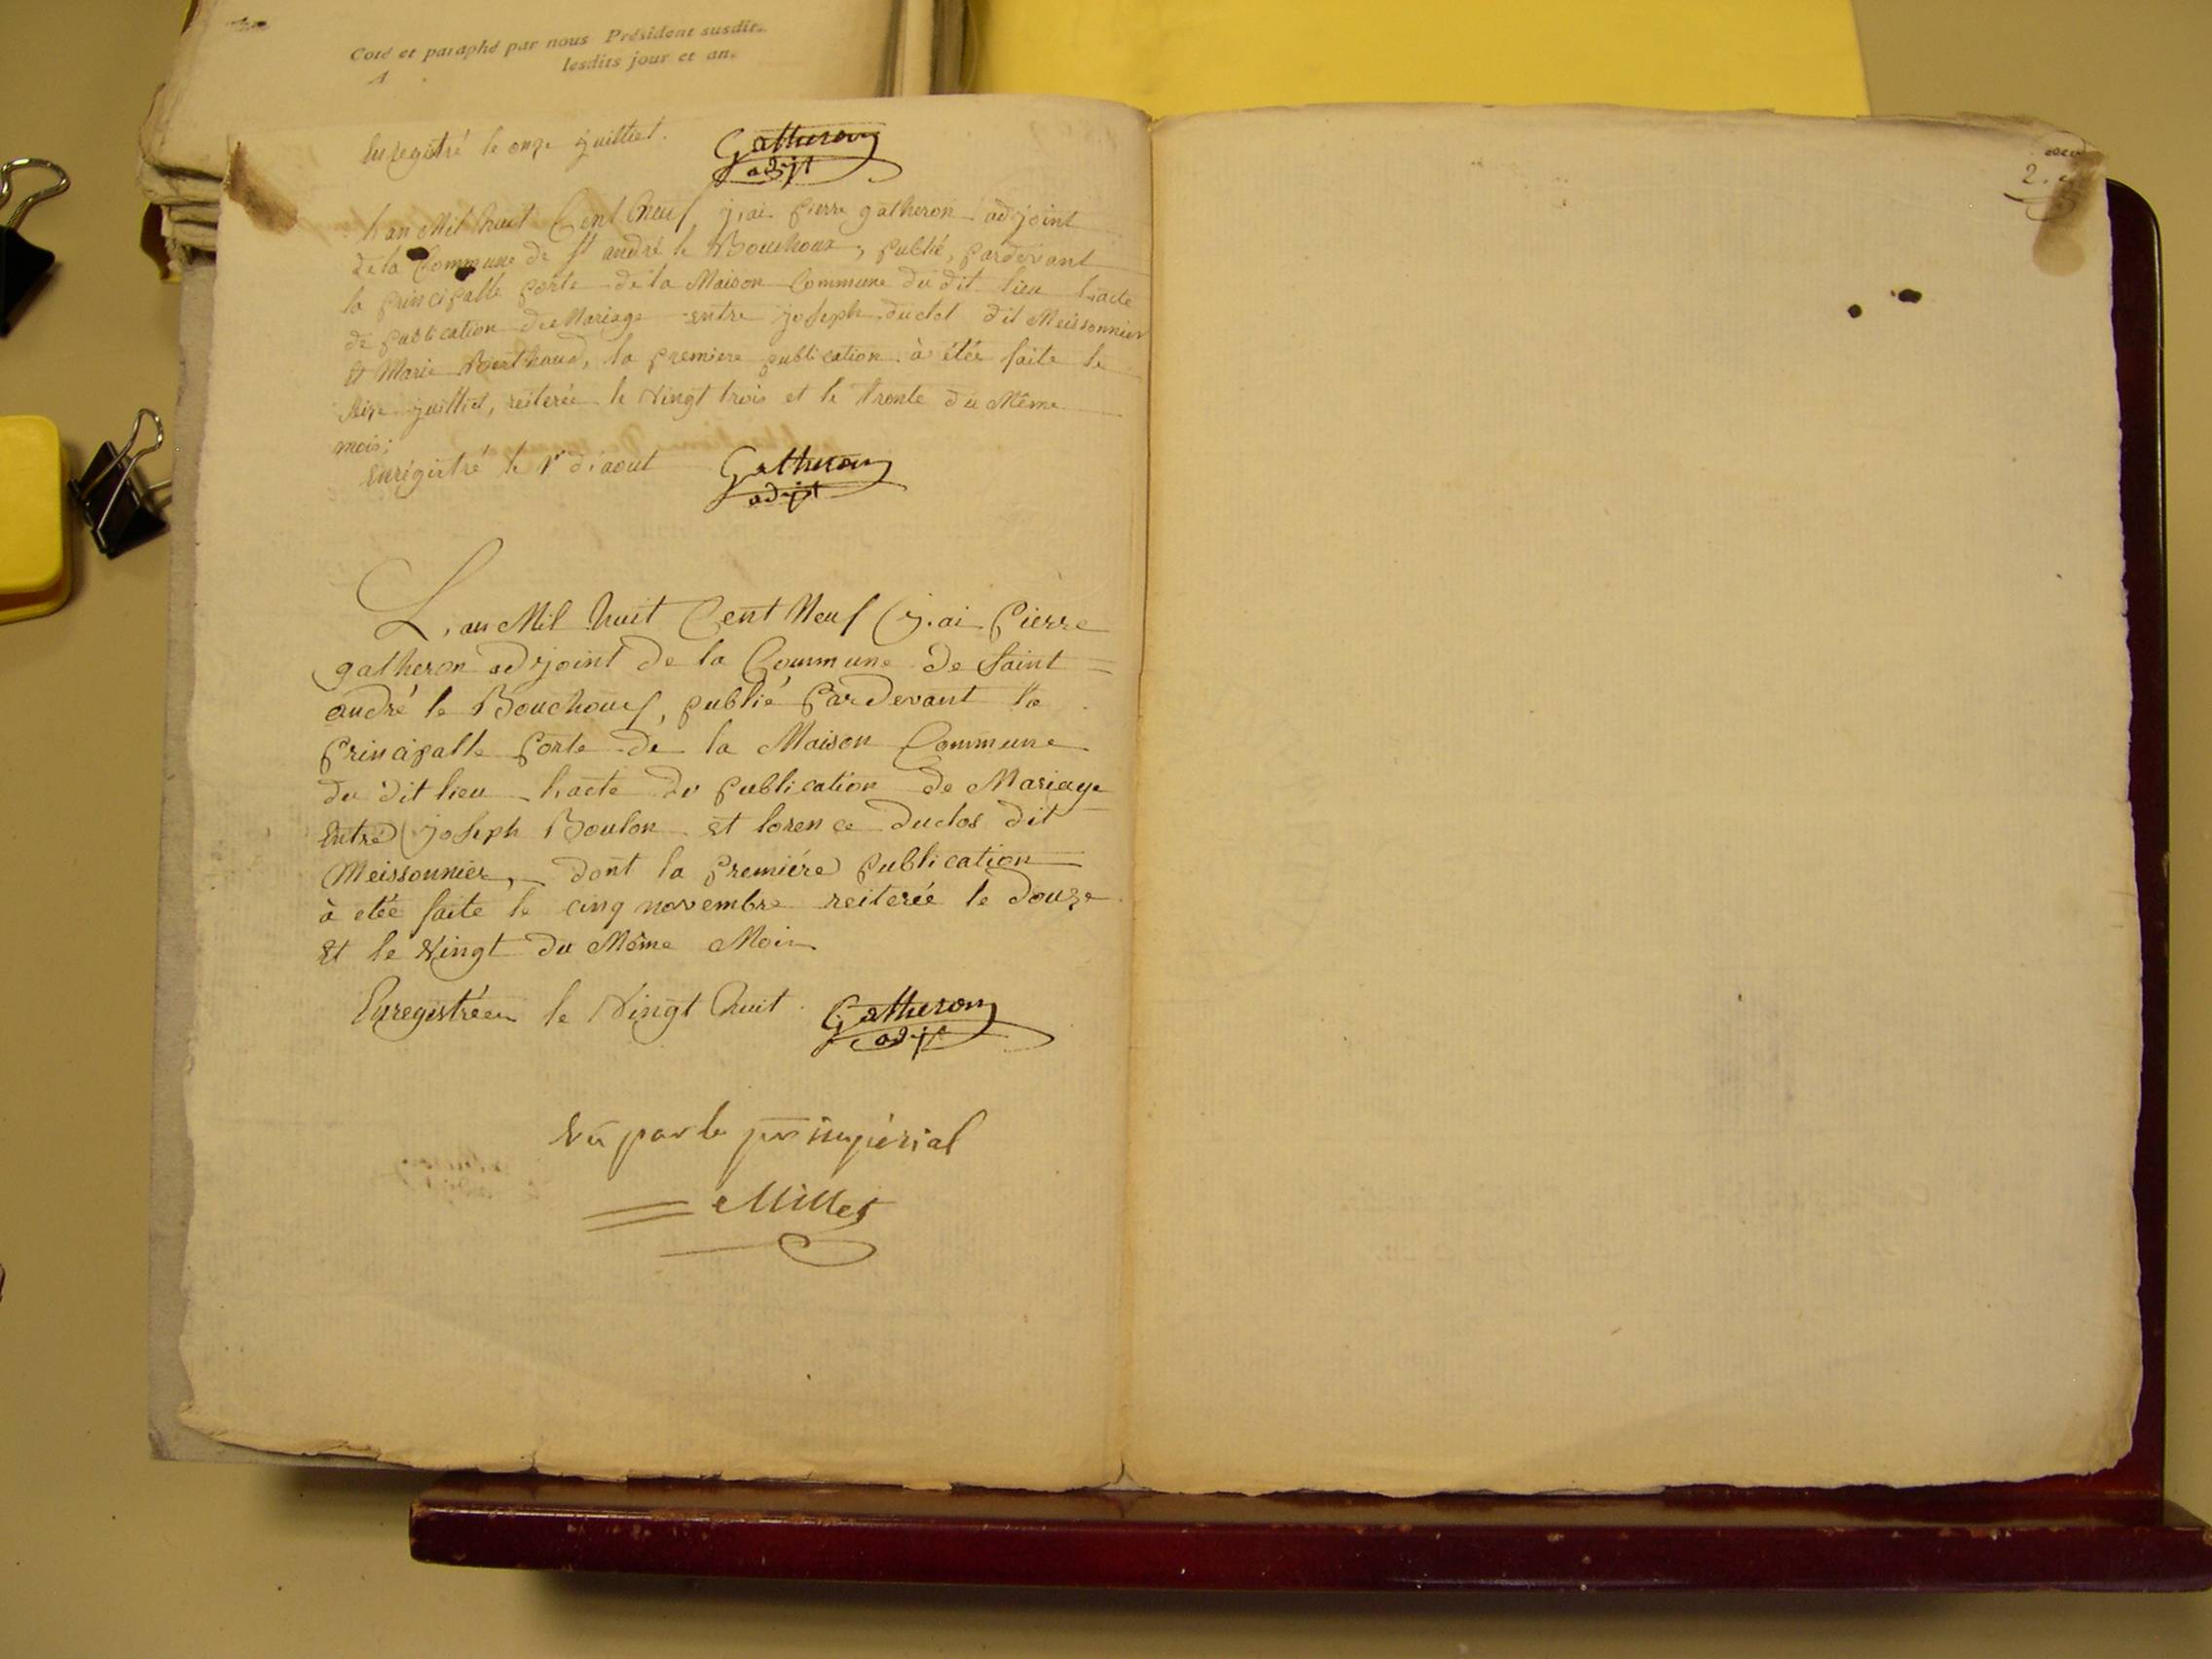 Coté et paraphé par nous Président susdit.
lesdits jour et an.
Enregistré le onze Juilliet.
Gatheron
adjt
L'an Mil huit Cent Neuf j'ai pierre gatheron adjoint
de la Commune de St andré le Bouchoux, publié, pardevant
la principalle porte de la Maison Commune du dit lieu L'acte
de publication de Mariage entre joseph duclos dit Meissonnier
et Marie Berthaud, la premiere publication à étée faite le
Seize juilliet, reiterée le Vingt trois et le trente du Même
mois;
Enregistré le 1r d'aout
Gatheron
adjt
L'an Mil huit Cent Neuf j'ai Pierre
gatheron adjoint de la Commune de Saint
andré le Bouchoux, publié pardevant la
principalle porte de la Maison Commune
du dit lieu L'acte de publication de Mariage
entre joseph Boulon et lorence duclos dit
Meissonnier, dont la premiére publication
à etée faite le cinq novembre reiterée le douze
et le Vingt du Même Mois
Enregistrée le Vingt huit
Gatheron
adjt
Vu par le pr impérial
Millet
2.